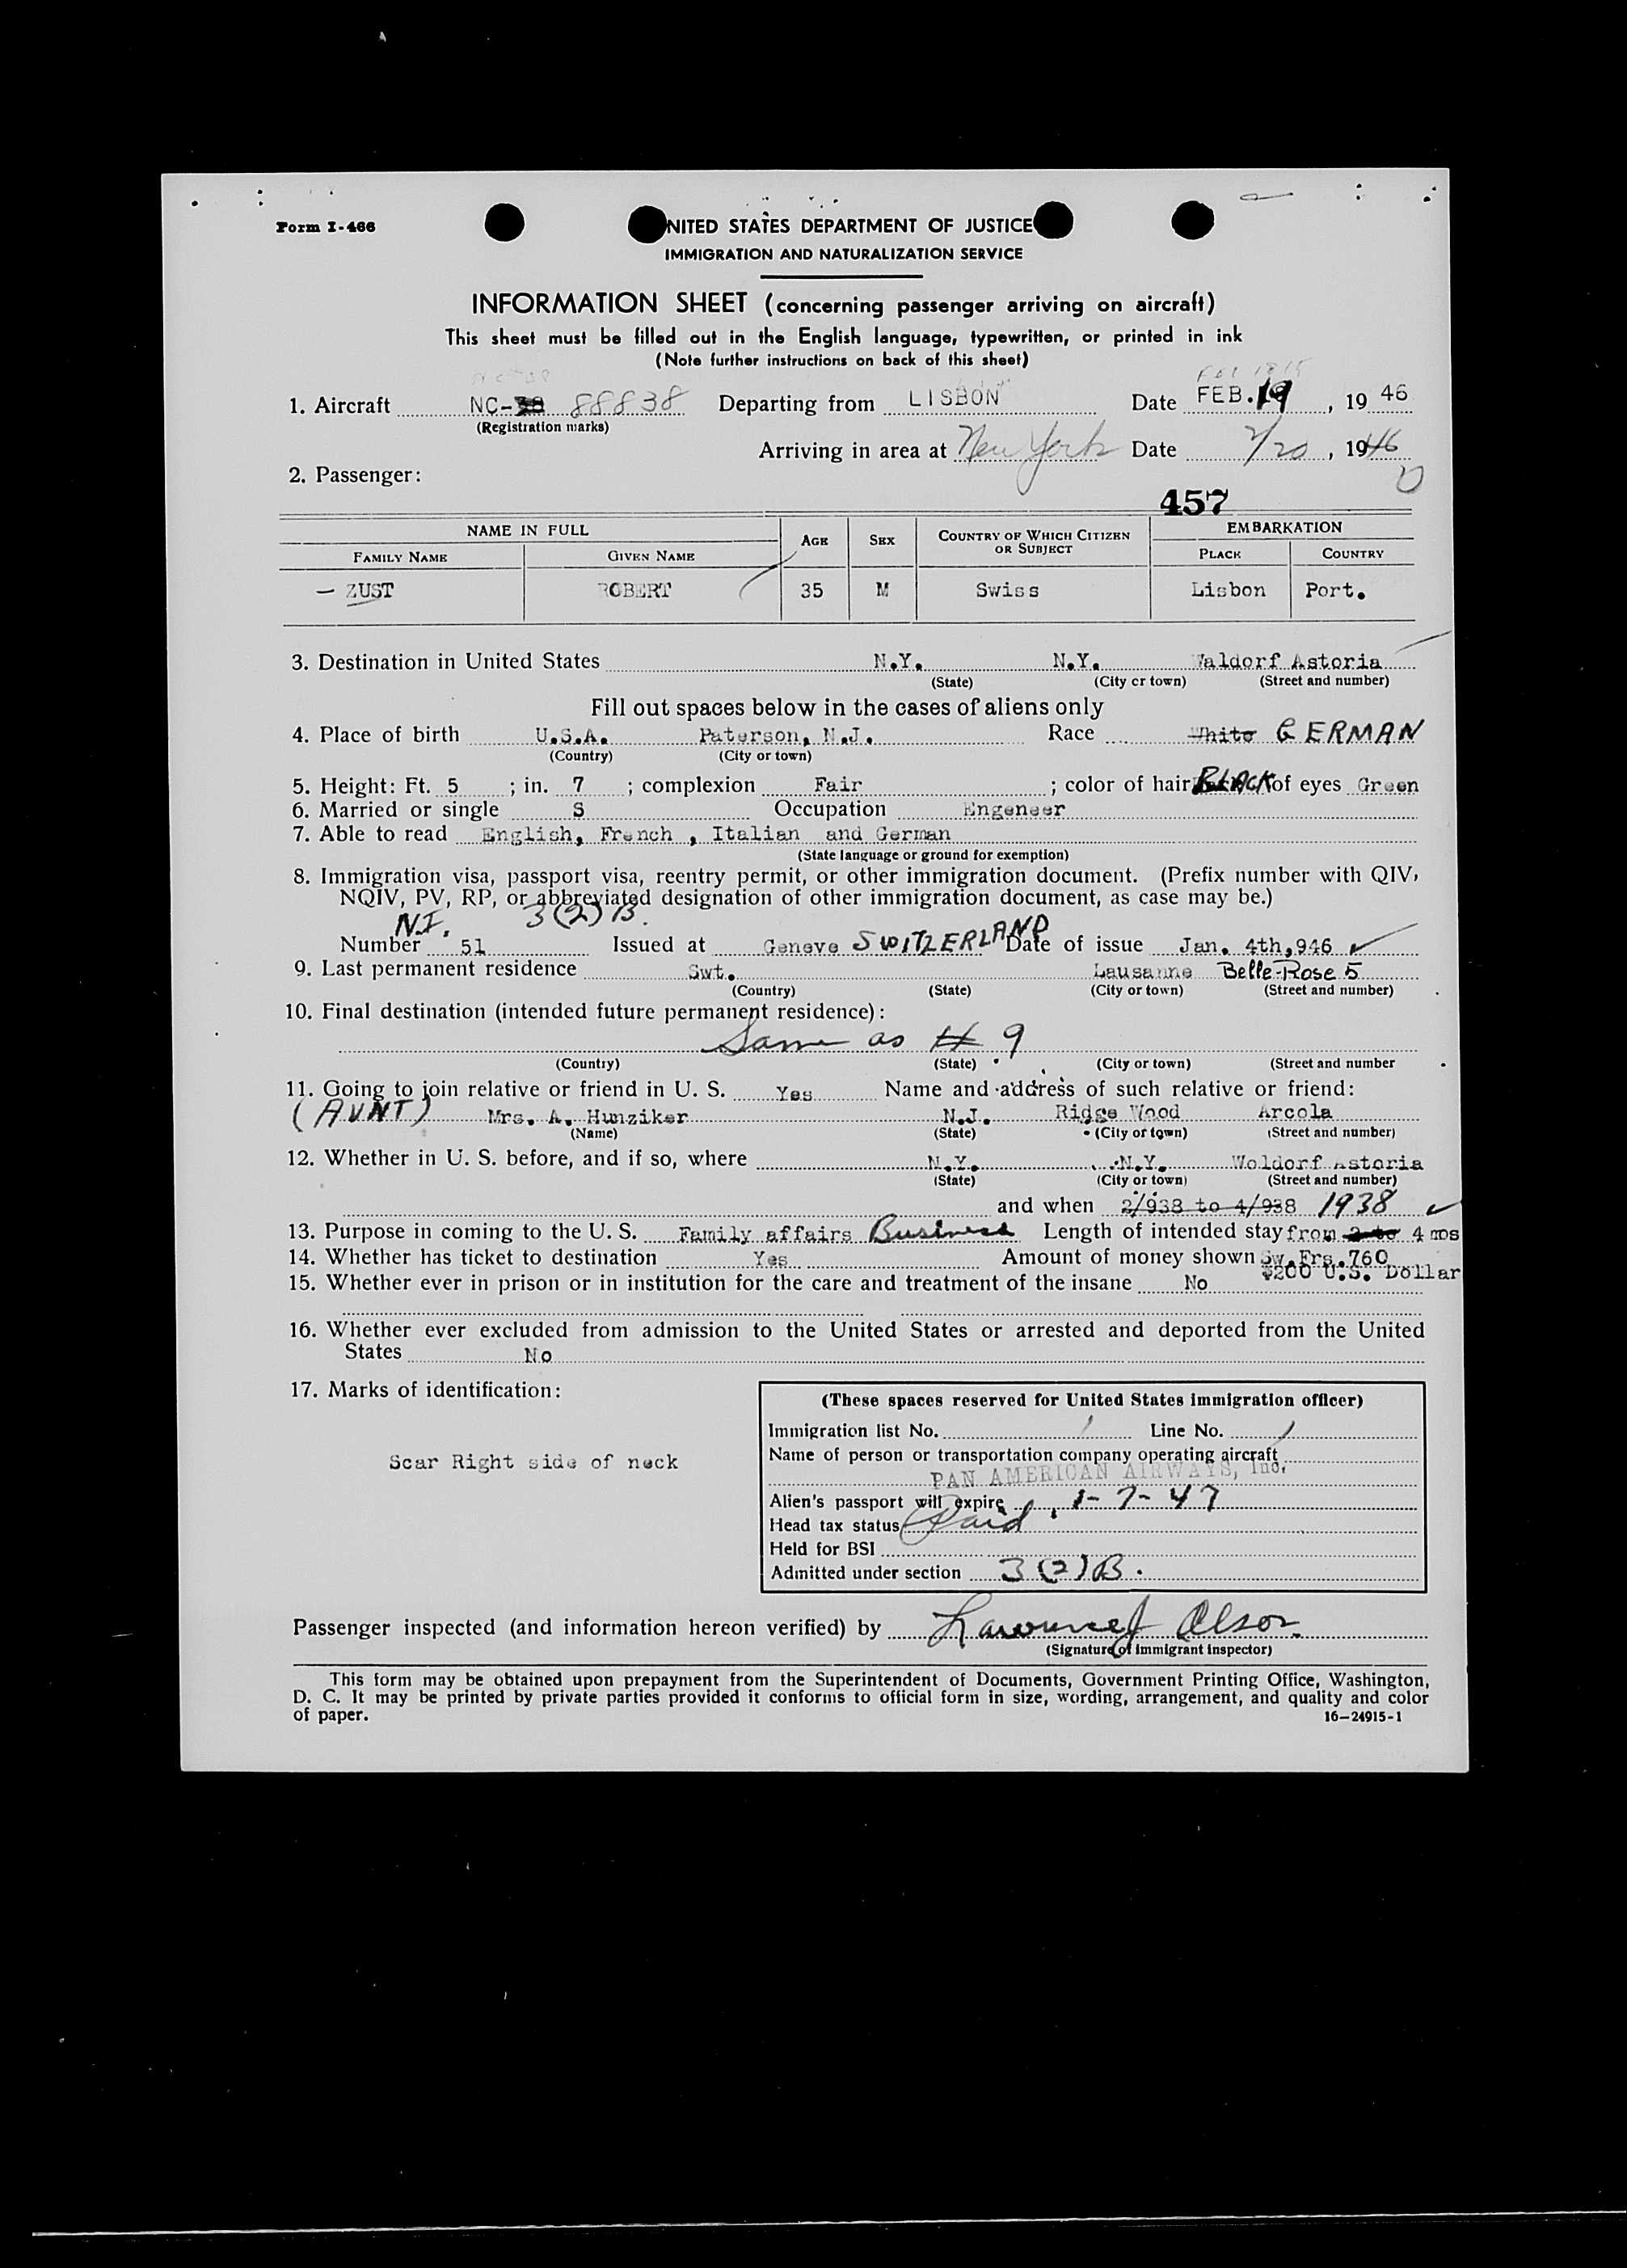 Form I-466
NITED STATES DEPARTMENT OF JUSTICE
IMMIGRATION AND NATURALIZATION SERVICE
INFORMATION SHEET (concerning passenger arriving on aircraft)
This sheet must be filled out in the English language, typewritten, or printed in ink
(Note further instructions on back of this sheet)
1. Aircraft NC- 88838 Departing from LISBON Date FEB. 19, 19 46
(Registration marks)
Arriving in area at New York Date 2/20, 1946
2. Passenger:
457
NAME IN FULL AGE SEX COUNTRY OF WHICH CITIZEN OR SUBJECT EMBARKATION
FAMILY NAME GIVEN NAME PLACE COUNTRY
— ZUST ROBERT 35 M Swiss Lisbon Port.
3. Destination in United States N.Y. N.Y. Waldorf Astoria
(State) (City or town) (Street and number)
Fill out spaces below in the cases of aliens only
4. Place of birth U.S.A. Paterson, N.J. Race White GERMAN
(Country) (City or town)
5. Height: Ft. 5 ; in. 7 ; complexion Fair ; color of hair BLACK of eyes Green
6. Married or single S Occupation Engeneer
7. Able to read English, French , Italian and German
(State language or ground for exemption)
8. Immigration visa, passport visa, reentry permit, or other immigration document. (Prefix number with QIV,
NQIV, PV, RP, or abbreviated designation of other immigration document, as case may be.)
N.I. 3(2)B.
Number 51 Issued at Geneve SWITZERLAND Date of issue Jan. 4th,946
9. Last permanent residence Swt. Lausanne Belle-Rose 5
(Country) (State) (City or town) (Street and number)
10. Final destination (intended future permanent residence):
Same as # 9
(Country) (State) (City or town) (Street and number
11. Going to join relative or friend in U. S. Yes Name and address of such relative or friend:
(AUNT) Mrs. A. Hunziker N.J. Ridge Wood Arcola
(Name) (State) (City or town) (Street and number)
12. Whether in U. S. before, and if so, where N.Y. N.Y. Woldorf Astoria
(State) (City or town) (Street and number)
and when 2/938 to 4/938 1938
13. Purpose in coming to the U. S. Family affairs Business Length of intended stay from 2 to 4 mos
14. Whether has ticket to destination Yes Amount of money shown Sw.Frs.760
$200 U.S. Dollar
15. Whether ever in prison or in institution for the care and treatment of the insane No
16. Whether ever excluded from admission to the United States or arrested and deported from the United
States No
17. Marks of identification:
Scar Right side of neck
(These spaces reserved for United States immigration officer)
Immigration list No. 1 Line No. 1
Name of person or transportation company operating aircraft
PAN AMERICAN AIRWAYS, Inc.
Alien's passport will expire 1-7-47
Head tax status Paid
Held for BSI
Admitted under section 3(2)B.
Passenger inspected (and information hereon verified) by Lawrence J Olson
(Signature of immigrant inspector)
This form may be obtained upon prepayment from the Superintendent of Documents, Government Printing Office, Washington,
D. C. It may be printed by private parties provided it conforms to official form in size, wording, arrangement, and quality and color
of paper.
16—24915-1